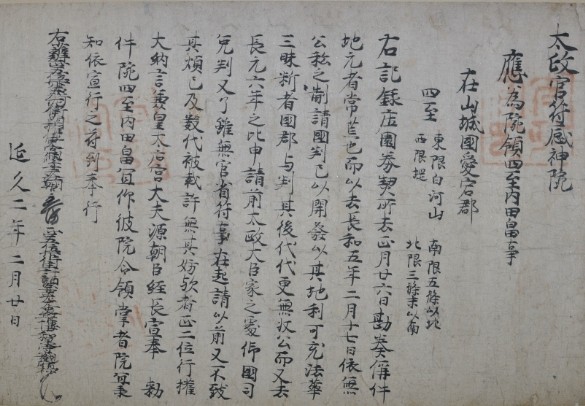 太政官符感神院
應為院領四至内田畠事
在山城國愛宕郡
四至 東限白河山 南限五條以北
西限堤 北限三條末以南
右記録庄園券契所去正月廿六日勘奏偁件
地元者常荒也而以去長和五年二月十七日依無
公私之制請國判已以開發以其地利可充法華
三昧断者國郡与判其後代代更無牧公而又去
長元六年之比申請前太政大臣家之處仰國司
免判又了雖無官省符事在起請以前又不致
其煩已及数代被裁許無其妨欤者正二位行權
大納言兼皇太后宮大夫源朝臣經長宣奉 勅
件院四至内田畠宜作彼院令領掌者院宜
知依宣行之符到奉行
右
延久二年二月廿日